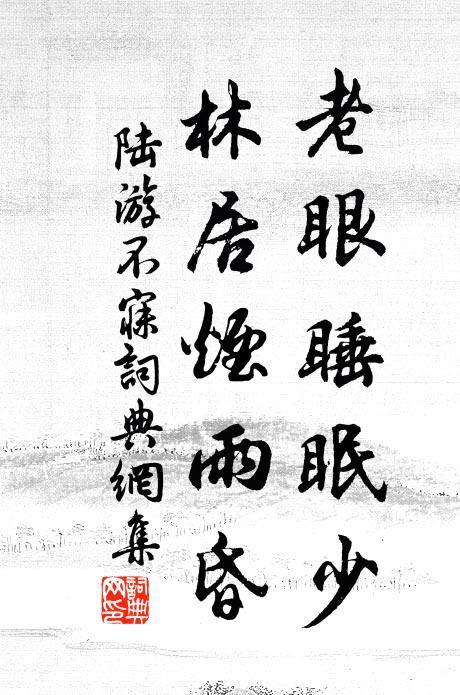 老眼睡眠少
林居煙雨昏
陸游不寐詞典網集
詞典网印